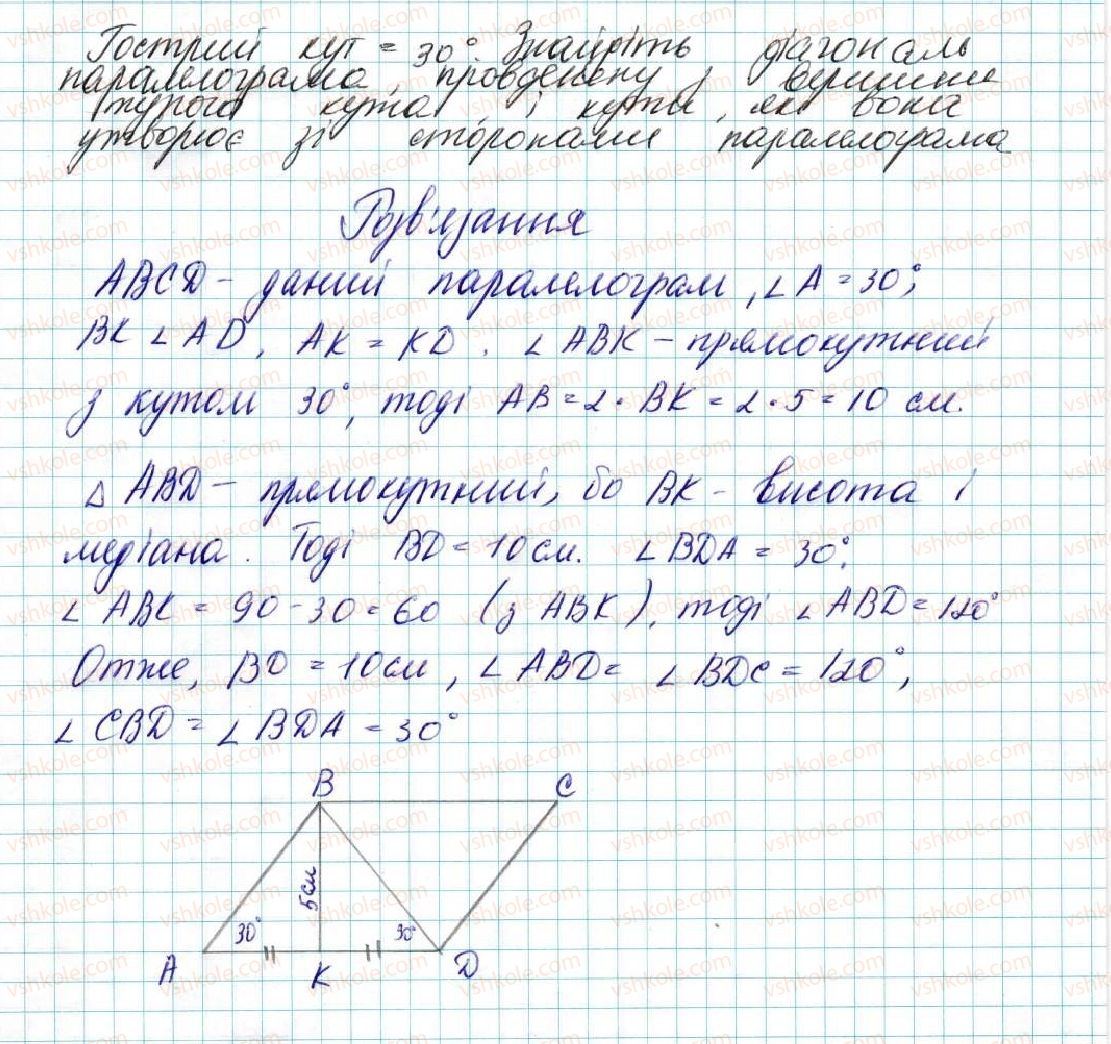 Гострий кут = 30°. Знайдіть діагональ
паралелограма, проведену з вершини
тупого кута, і кути, які вона
утворює зі сторонами паралелограма
Розв'язання
ABCD - даний паралелограм, ∠A = 30°;
BK ∠ AD, AK = KD. ∠ ABK - прямокутний
з кутом 30°, тоді AB = 2 · BK = 2 · 5 = 10 см.
△ ABD - прямокутний, бо BK - висота і
медіана. Тоді BD = 10 см. ∠ BDA = 30°.
∠ ABK = 90 - 30 = 60 (з ABK), тоді ∠ ABD = 120°
Отже, BD = 10 см, ∠ ABD = ∠ BDC = 120°,
∠ CBD = ∠ BDA = 30°
B C
5 см
30° 30°
A K D